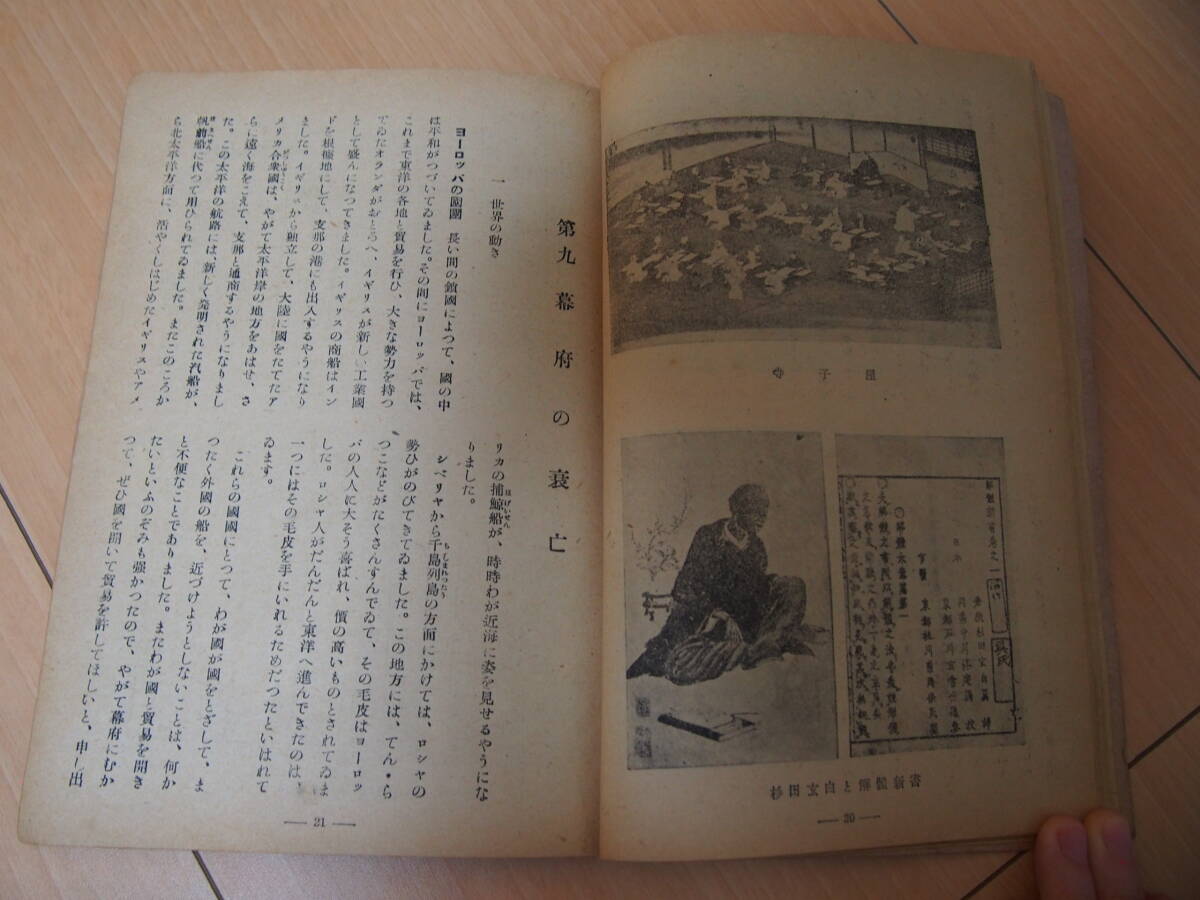 寺子屋
杉田玄白と解體新書
— 20 —
第九 幕府の衰亡
一 世界の動き
ヨーロッパの國國 長い間の鎖國によつて、國の中
は平和がつづいてゐました。その間にヨーロッパでは、
これまで東洋の各地と貿易を行ひ、大きな勢力を持つ
てゐたオランダがおとろへ、イギリスが新しい工業國
として盛んになつてきました。イギリスの商船はイン
ドを根據地にして、支那の港にも出入するやうになり
ました。イギリスから独立して、大陸に國をたてたア
メリカ合衆國は、やがて太平洋岸の地方をあはせ、さ
らに遠く海をこえて、支那と通商するやうになりまし
た。この太平洋の航路には、新しく発明された汽船が、
帆前船に代つて用ひられてゐました。またこのころか
ら北太平洋方面に、活やくしはじめたイギリスやアメ
リカの捕鯨船が、時時わが近海に姿を見せるやうにな
りました。
シベリヤから千島列島の方面にかけては、ロシヤの
勢ひがのびてきてゐました。この地方には、てん・ら
つこなどがたくさんすんでゐて、その毛皮はヨーロッ
パの人人に大そう喜ばれ、價の高いものとされてゐま
した。ロシヤ人がだんだんと東洋へ進んできたのは、
一つにはその毛皮を手にいれるためだつたといはれて
ゐます。
これらの國國にとつて、わが國が國をとざして、ま
つたく外國の船を、近づけようとしないことは、何か
と不便なことでありました。またわが國と貿易を開き
たいといふのぞみも強かつたので、やがて幕府にむか
つて、ぜひ國を開いて貿易を許してほしいと、申し出
— 21 —